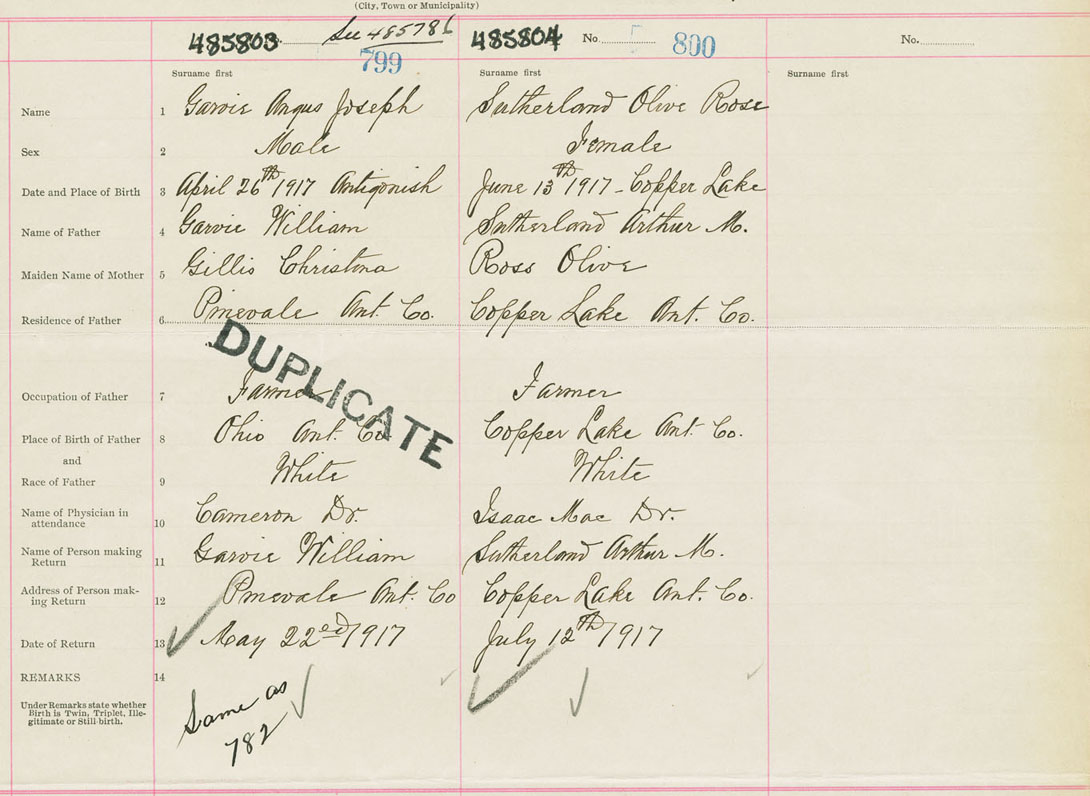 (City, Town or Municipality)
485803 See 485786 799
485804 No. 800
No.
Surname first Surname first Surname first
Name 1 Garvie Angus Joseph Sutherland Olive Rose
Sex 2 Male Female
Date and Place of Birth 3 April 26th 1917 Antigonish June 13th 1917 - Copper Lake
Name of Father 4 Garvie William Sutherland Arthur M.
Maiden Name of Mother 5 Gillis Christina Ross Olive
Residence of Father 6 Pinevale Ant. Co. Copper Lake Ant. Co.
DUPLICATE
Occupation of Father 7 Farmer Farmer
Place of Birth of Father 8 Ohio Ant. Co Copper Lake Ant. Co.
and
Race of Father 9 White White
Name of Physician in
attendance 10 Cameron Dr. Isaac Mac Dr.
Name of Person making
Return 11 Garvie William Sutherland Arthur M.
Address of Person mak-
ing Return 12 Pinevale Ant. Co Copper Lake Ant. Co.
Date of Return 13 May 22nd 1917 July 12th 1917
REMARKS 14
Under Remarks state whether
Birth is Twin, Triplet, Ille-
gitimate or Still-birth.
Same as
782